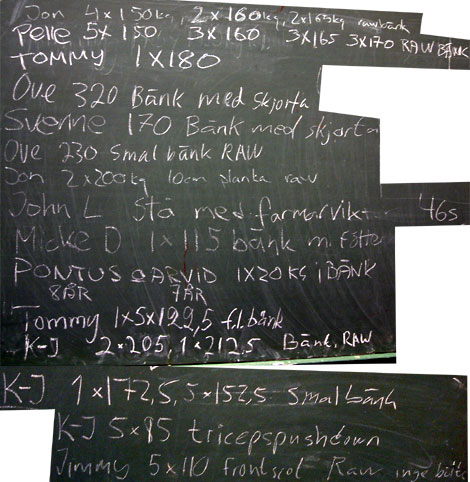 Jon 4x150kg, 2x160kg, 2x165kg rawbänk
Pelle 5x150 3x160 3x165 3x170 RAW BÄNK
TOMMY 1x180
Ove 320 Bänk med skjorta
Sverine 170 Bänk med skjorta
Ove 230 Smalbänk RAW
Jon 2x200kg 10cm planka raw
John L Stå med farmarvikt 46s
Micke D 1x115 bänk m. fötter
PONTUS ARVID 1x20KG i BÄNK
8ÅR 7ÅR
Tommy 1x5x122,5 f.l. bänk
K-J 2x205, 1x212,5 Bänk, RAW
K-J 1x172,5, 5x152,5 Smalbänk
K-J 5x85 tricepspushdown
Jimmy 5x110 frontsqt Raw inge bälte